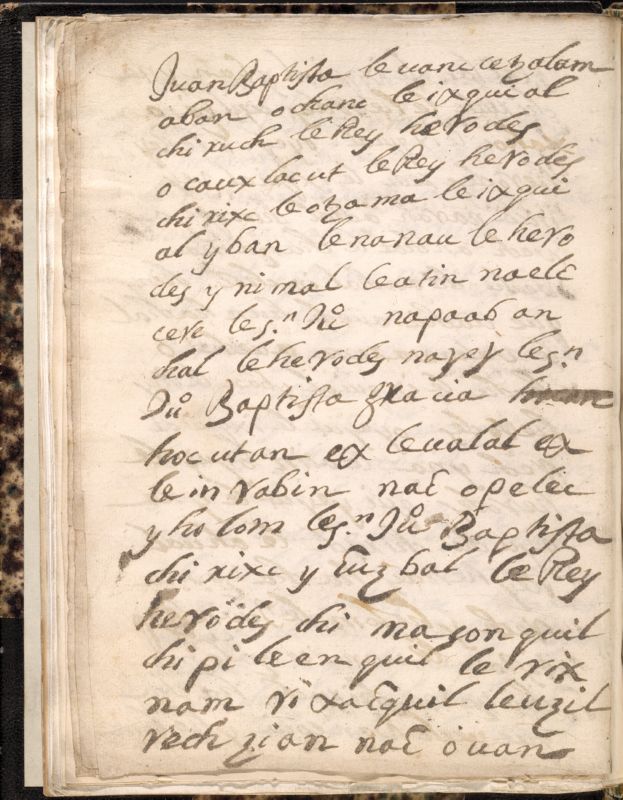 Juan Baptista le uanc cetzalam
aban ochanc le ixqui al
chi ruch le Rey herodes
o caux locut le Rey herodes
chi rixc le otza ma le ixqui
al y ban le nanau le hero
des y ni mal le atin naelc̄
cere le s.n Juº napaab an
chal le herodes nayey le s.n
Juº Baptista gracia
hoc utan ex le ualal ex
le in rabin nac̄ opelec
y holom le s.n Juº Baptista
chi rixc y c̄uz bal le Rey
herodes chi ma con quil
chi pi le en quil le rix
nam ri xac̄quil le uzil
rech zian nac̄ o uan